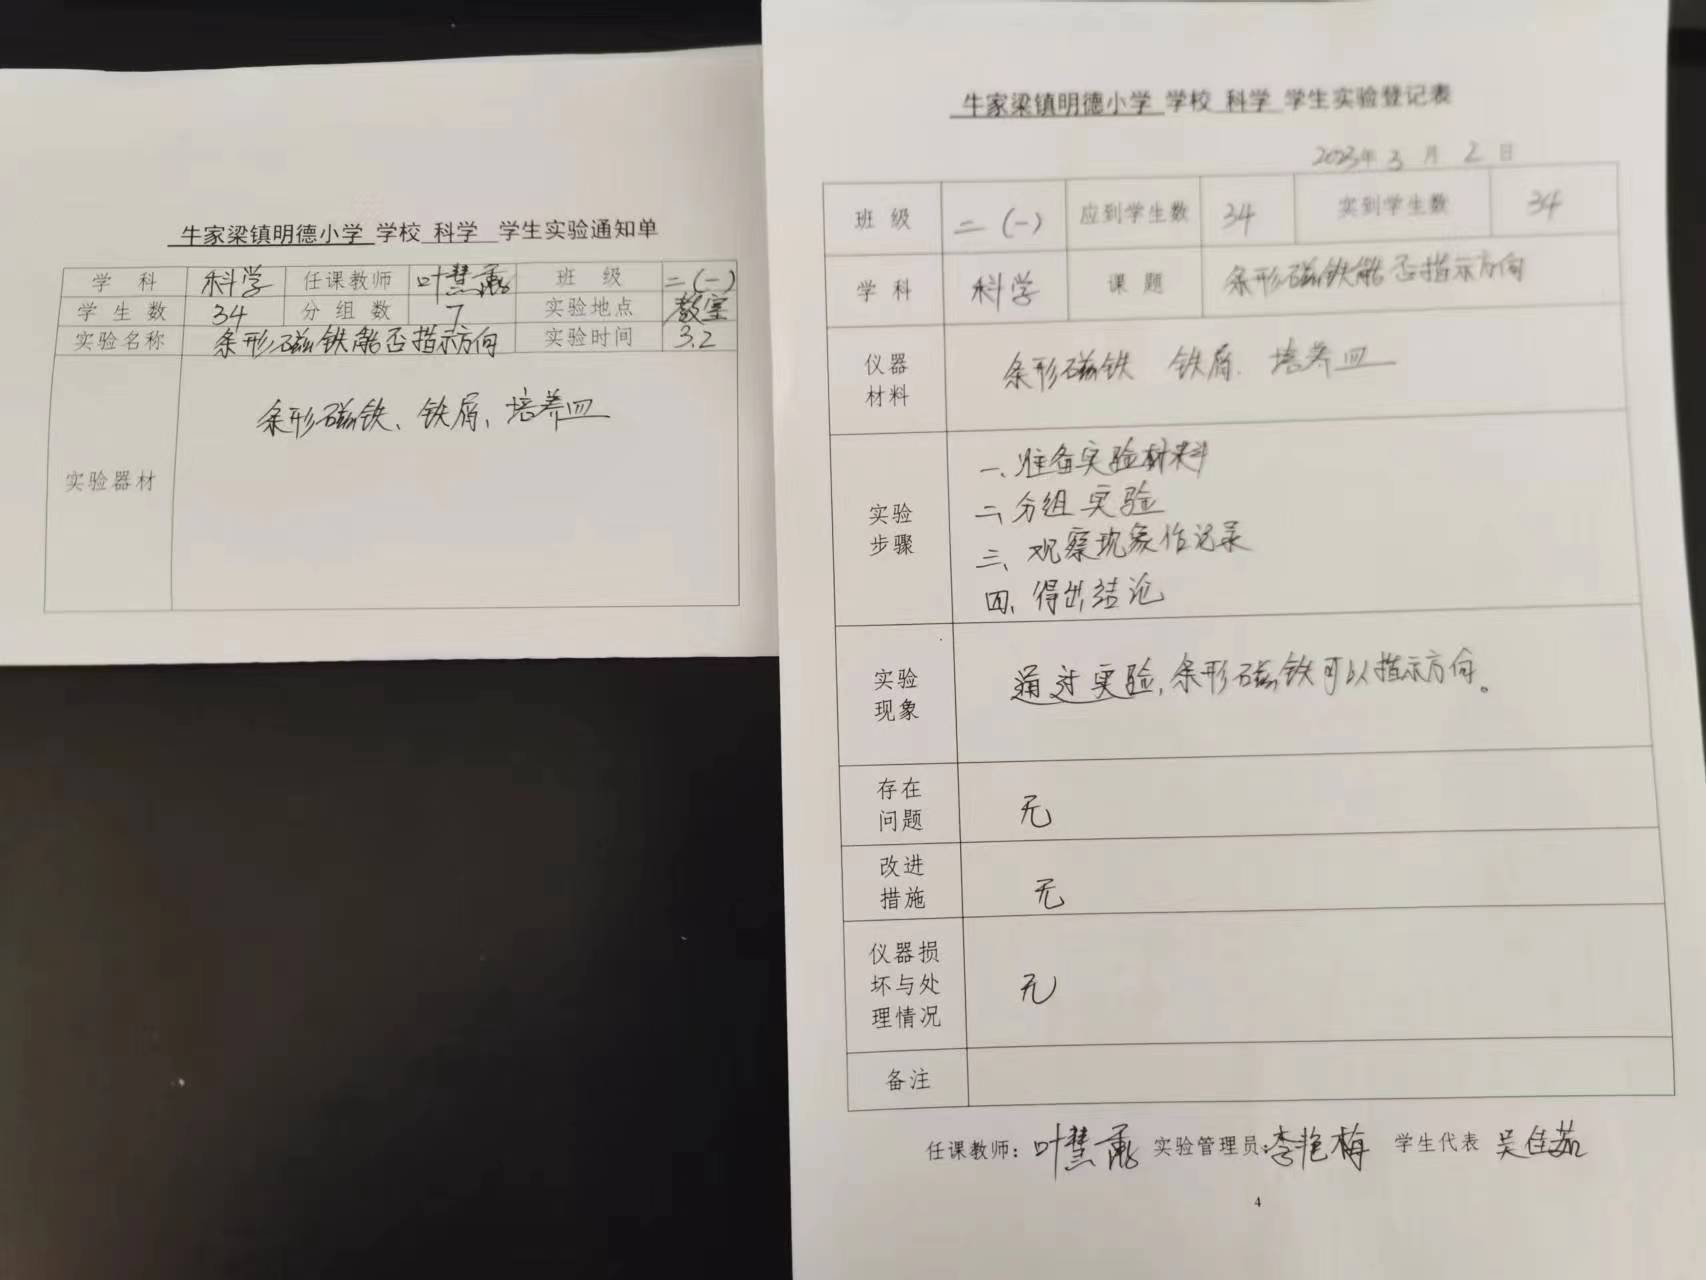 牛家梁镇明德小学 学校 科学 学生实验通知单
学 科 科学 任课教师 叶慧 班 级 二(一)
学 生 数 34 分 组 数 7 实验地点 教室
实验名称 条形磁铁能否指示方向 实验时间 3.2
实验器材 条形磁铁、铁屑、培养皿
牛家梁镇明德小学 学校 科学 学生实验登记表
2023年 3 月 2 日
班 级 二(一) 应到学生数 34 实到学生数 34
学 科 科学 课 题 条形磁铁能否指示方向
仪器
材料
条形磁铁 铁屑、培养皿
实验
步骤
一、准备实验材料
二、分组实验
三、观察现象作记录
四、得出结论
实验
现象
通过实验,条形磁铁可以指示方向。
存在
问题
无
改进
措施
无
仪器损
坏与处
理情况
无
备注
任课教师:叶慧 实验管理员:李艳梅 学生代表 吴佳茹
4